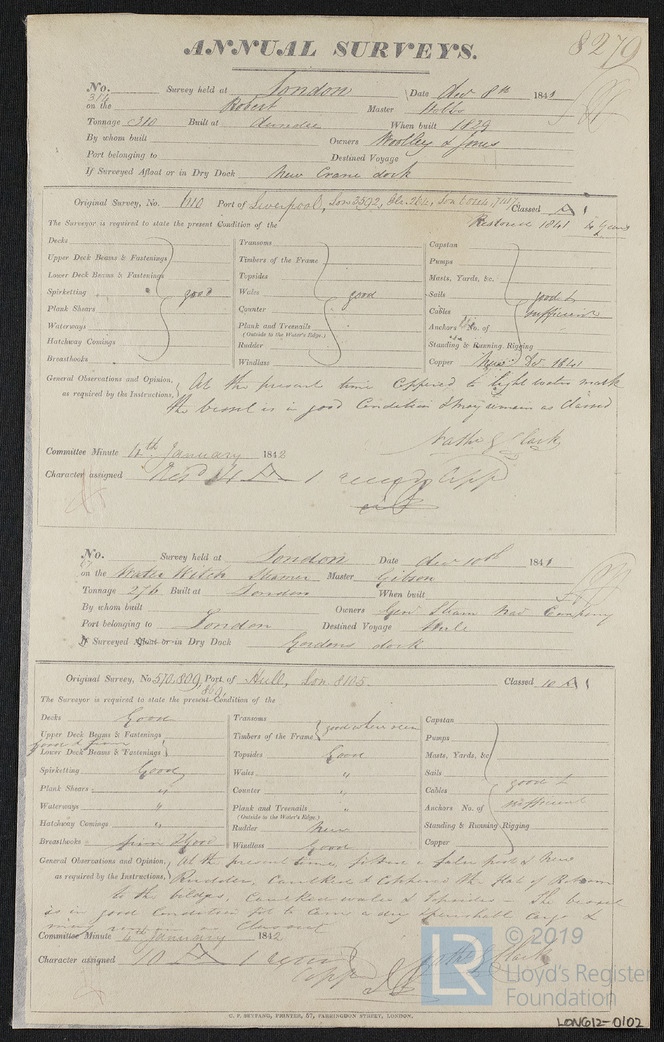 8279
ANNUAL SURVEYS.
No. 314 Survey held at London Date Decr 8th 1841
on the Robert Master
Tonnage 310 Built at Dundee When built 1829
By whom built Owners Woolley & Jones
Port belonging to Destined Voyage
If Surveyed Afloat or in Dry Dock New Crane dock
Original Survey, No. 610 Port of Liverpool, Lon 3592, Classed A 1
Restored 1841 4 years
The Surveyor is required to state the present Condition of the
Decks
Upper Deck Beams & Fastenings
Lower Deck Beams & Fastenings
Spirketting good
Plank Shears
Waterways
Hatchway Comings
Breasthooks
Transoms
Timbers of the Frame
Topsides
Wales good
Counter
Plank and Treenails
(Outside to the Water's Edge.)
Rudder
Windlass
Capstan
Pumps
Masts, Yards, &c.
Sails good &
Cables sufficient
Anchors No. of
Standing & Running Rigging
Copper New Dec 1841
General Observations and Opinion, as required by the Instructions,
At the present time Coppered to light water mark
the vessel is in good Condition & may remain as Classed
Nathl G Clark
Committee Minute 4th January 1842
Character assigned A 1
No. 67 Survey held at London Date Decr 10th 1841
on the Water Witch Steamer Master Gibson
Tonnage 276 Built at London When built
By whom built Owners Genl Steam Nav Company
Port belonging to London Destined Voyage
If Surveyed Afloat or in Dry Dock Gordons dock
Original Survey, No 570, 809, Port of Hull, Lon 8105. Classed 10 A 1
The Surveyor is required to state the present Condition of the
Decks Good
Upper Deck Beams & Fastenings
good & firm
Lower Deck Beams & Fastenings
Spirketting Good
Plank Shears "
Waterways "
Hatchway Comings "
Breasthooks firm & Good
Transoms
Timbers of the Frame good where seen
Topsides Good
Wales "
Counter "
Plank and Treenails "
(Outside to the Water's Edge.)
Rudder New
Windlass Good
Capstan
Pumps
Masts, Yards, &c
Sails
Cables good &
Anchors No. of sufficient
Standing & Running Rigging
Copper
General Observations and Opinion, as required by the Instructions,
At the present time, fitted a false post & New
Rudder, Caulked & Coppered the flat of Bottom
to the bilges, Caulked wales & Topsides - The vessel
is in good Condition fit to Carry a dry & perishable Cargo &
may remain as Classed
Committee Minute 4th January 1842
Character assigned 10 A 1
Nathl G Clark
C. F. SEYFANG, PRINTER, 57, FARRINGDON STREET, LONDON.
LR
© 2019
Lloyd's Register
Foundation
LON612-0102